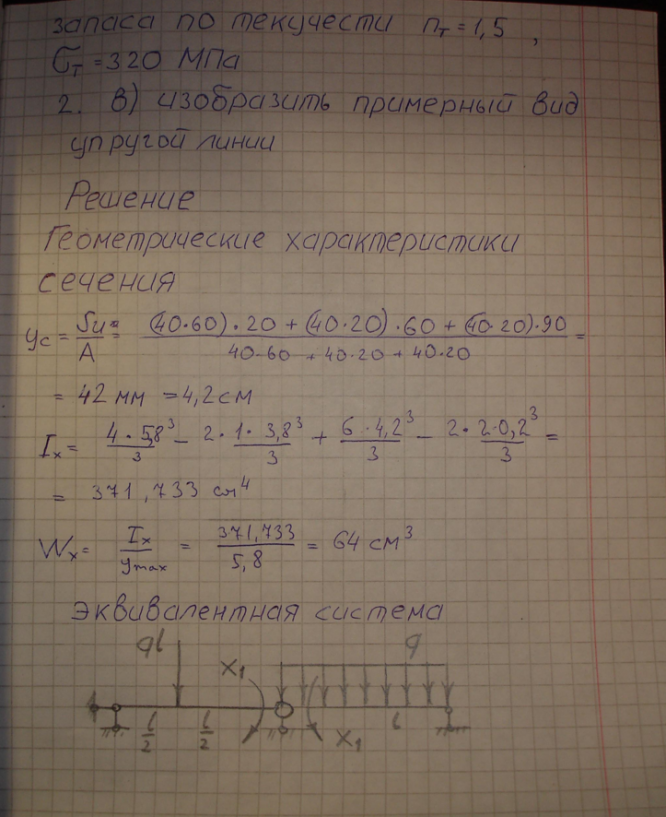 запаса по текучести nт = 1,5 ,
σт = 320 МПа
2. в) изобразить примерный вид
упругой линии
Решение
Геометрические характеристики
сечения
yс = Sи / A = ((40·60)·20 + (40·20)·60 + (40·20)·90) / (40·60 + 40·20 + 40·20) =
= 42 мм = 4,2 см
Iх = 4·5,8³/3 − 2·1·3,8³/3 + 6·4,2³/3 − 2·2·0,2³/3 =
= 371,733 см⁴
Wх = Iх / ymax = 371,733 / 5,8 = 64 см³
Эквивалентная система
ql X₁ q
l/2 l/2 X₁ l